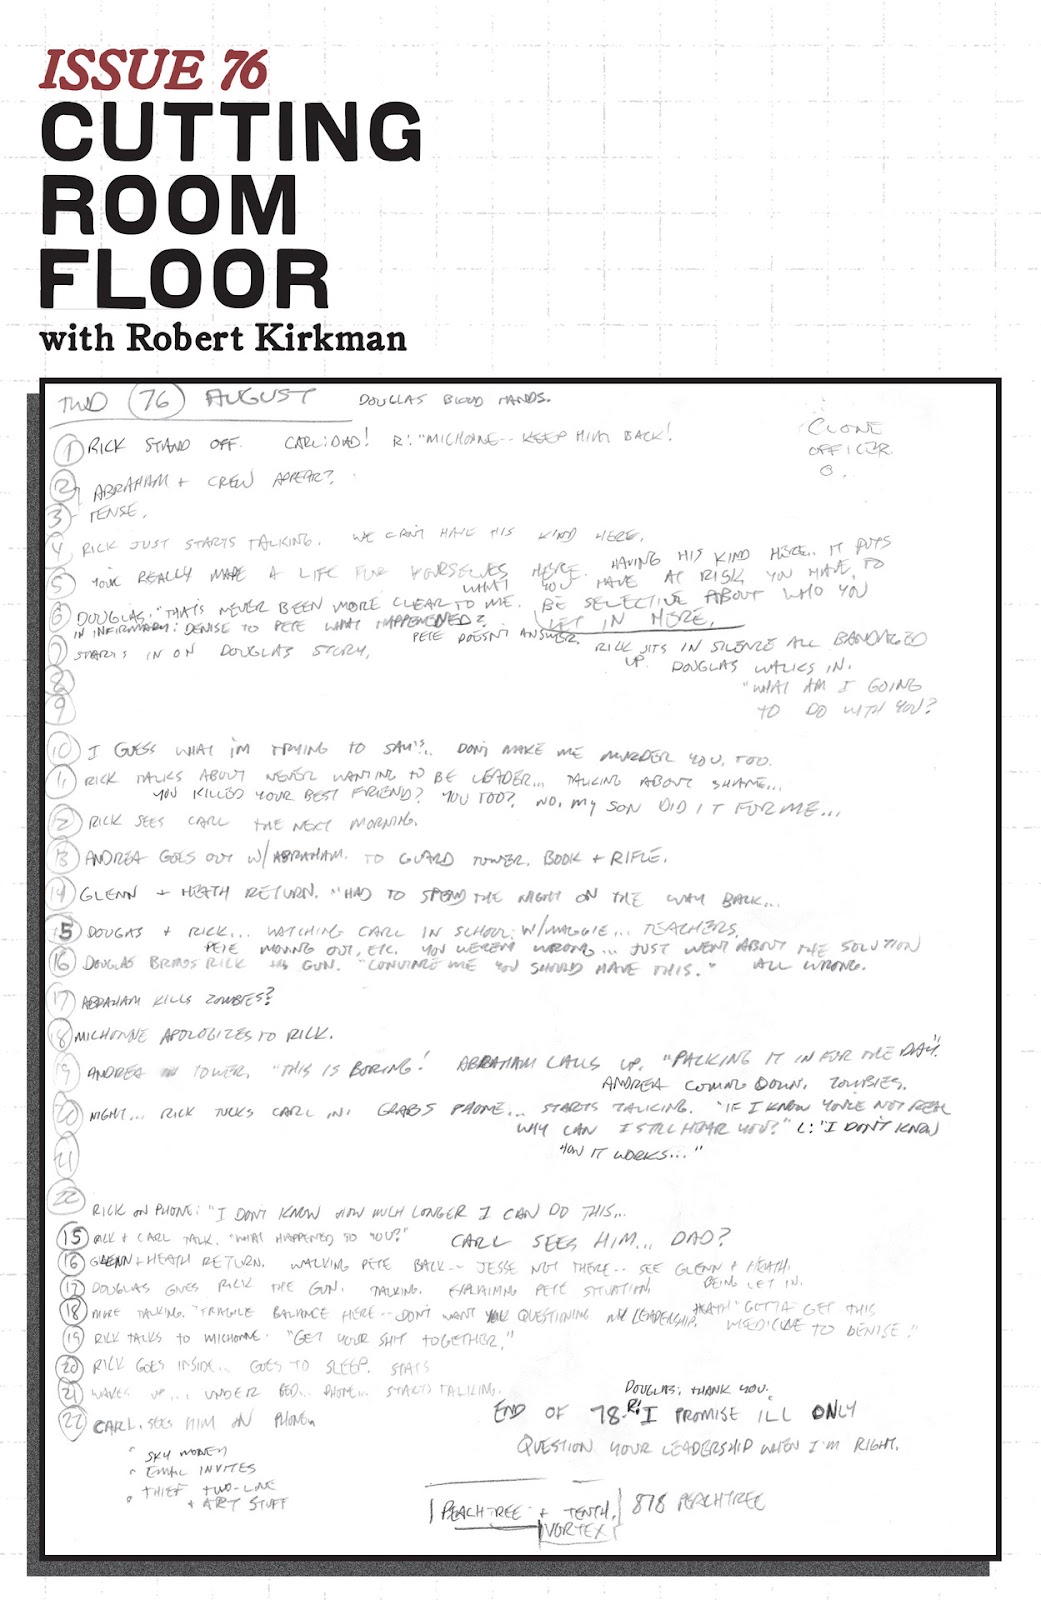 ISSUE 76
CUTTING
ROOM
FLOOR
with Robert Kirkman
TWD 76 AUGUST DOUGLAS BLOOD HANDS.
CLONE
OFFICER
1 RICK STAND OFF. CARL: DAD! R: "MICHONNE-- KEEP HIM BACK!
2 ABRAHAM + CREW APPEAR?
3 TENSE.
4 RICK JUST STARTS TALKING. WE CAN'T HAVE HIS KIND HERE.
5 YOU'VE REALLY MADE A LIFE FOR YOURSELVES HERE. HAVING HIS KIND HERE.. IT PUTS
WHAT YOU HAVE AT RISK YOU HAVE TO
6 DOUGLAS: "THAT'S NEVER BEEN MORE CLEAR TO ME. BE SELECTIVE ABOUT WHO YOU
LET IN HERE.
IN INFIRMARY: DENISE TO PETE WHAT HAPPENED?
PETE DOESN'T ANSWER.
7 STARTS IN ON DOUGLAS STORY. RICK SITS IN SILENCE ALL BANDAGED
UP. DOUGLAS WALKS IN.
8 "WHAT AM I GOING
9 TO DO WITH YOU?
10 I GUESS WHAT I'M TRYING TO SAY IS.. DON'T MAKE ME MURDER YOU, TOO.
11 RICK TALKS ABOUT NEVER WANTING TO BE LEADER... TALKING ABOUT SHANE...
YOU KILLED YOUR BEST FRIEND? YOU TOO? NO, MY SON DID IT FOR ME...
12 RICK SEES CARL THE NEXT MORNING.
13 ANDREA GOES OUT W/ ABRAHAM. TO GUARD TOWER. BOOK + RIFLE.
14 GLENN + HEATH RETURN. "HAD TO SPEND THE NIGHT ON THE WAY BACK...
15 DOUGAS + RICK... WATCHING CARL IN SCHOOL W/MAGGIE... TEACHERS.
PETE MOVING OUT, ETC. YOU WEREN'T WRONG... JUST WENT ABOUT THE SOLUTION
16 DOUGLAS BRINGS RICK HIS GUN. "CONVINCE ME YOU SHOULD HAVE THIS." ALL WRONG.
17 ABRAHAM KILLS ZOMBIES?
18 MICHONNE APOLOGIZES TO RICK.
19 ANDREA TOWER. "THIS IS BORING! ABRAHAM CALLS UP. "PACKING IT IN FOR THE DAY".
ANDREA COMING DOWN. ZOMBIES.
20 NIGHT... RICK TUCKS CARL IN. GRABS PHONE... STARTS TALKING. "IF I KNOW YOU'RE NOT REAL
WHY CAN I STILL HEAR YOU?" L: "I DON'T KNOW
21 HOW IT WORKS..."
22 RICK ON PHONE: "I DON'T KNOW HOW MUCH LONGER I CAN DO THIS...
15 RICK + CARL TALK. "WHAT HAPPENED TO YOU?" CARL SEES HIM... DAD?
16 GLENN + HEATH RETURN. WALKING PETE BACK-- JESSE NOT THERE-- SEE GLENN + HEATH.
BEING LET IN.
17 DOUGLAS GIVES RICK THE GUN. TALKING. EXPLAINING PETE SITUATION
18 MORE TALKING. "FRAGILE BALANCE HERE-- DON'T WANT YOU QUESTIONING MY LEADERSHIP. HEATH "GOTTA GET THIS
MEDICINE TO DENISE."
19 RICK TALKS TO MICHONNE. "GET YOUR SHIT TOGETHER."
20 RICK GOES INSIDE... GOES TO SLEEP.
21 WAKES UP... UNDER BED... PHONE... STARTS TALKING.
22 CARL. SEES HIM ON PHONE.
DOUGLAS: THANK YOU.
END OF 78. R: I PROMISE I'LL ONLY
QUESTION YOUR LEADERSHIP WHEN I'M RIGHT.
SKY MONEY
EMAIL INVITES
THIEF TWO-LINE
+ ART STUFF
PEACHTREE + TENTH. 878 PEACHTREE
VORTEX